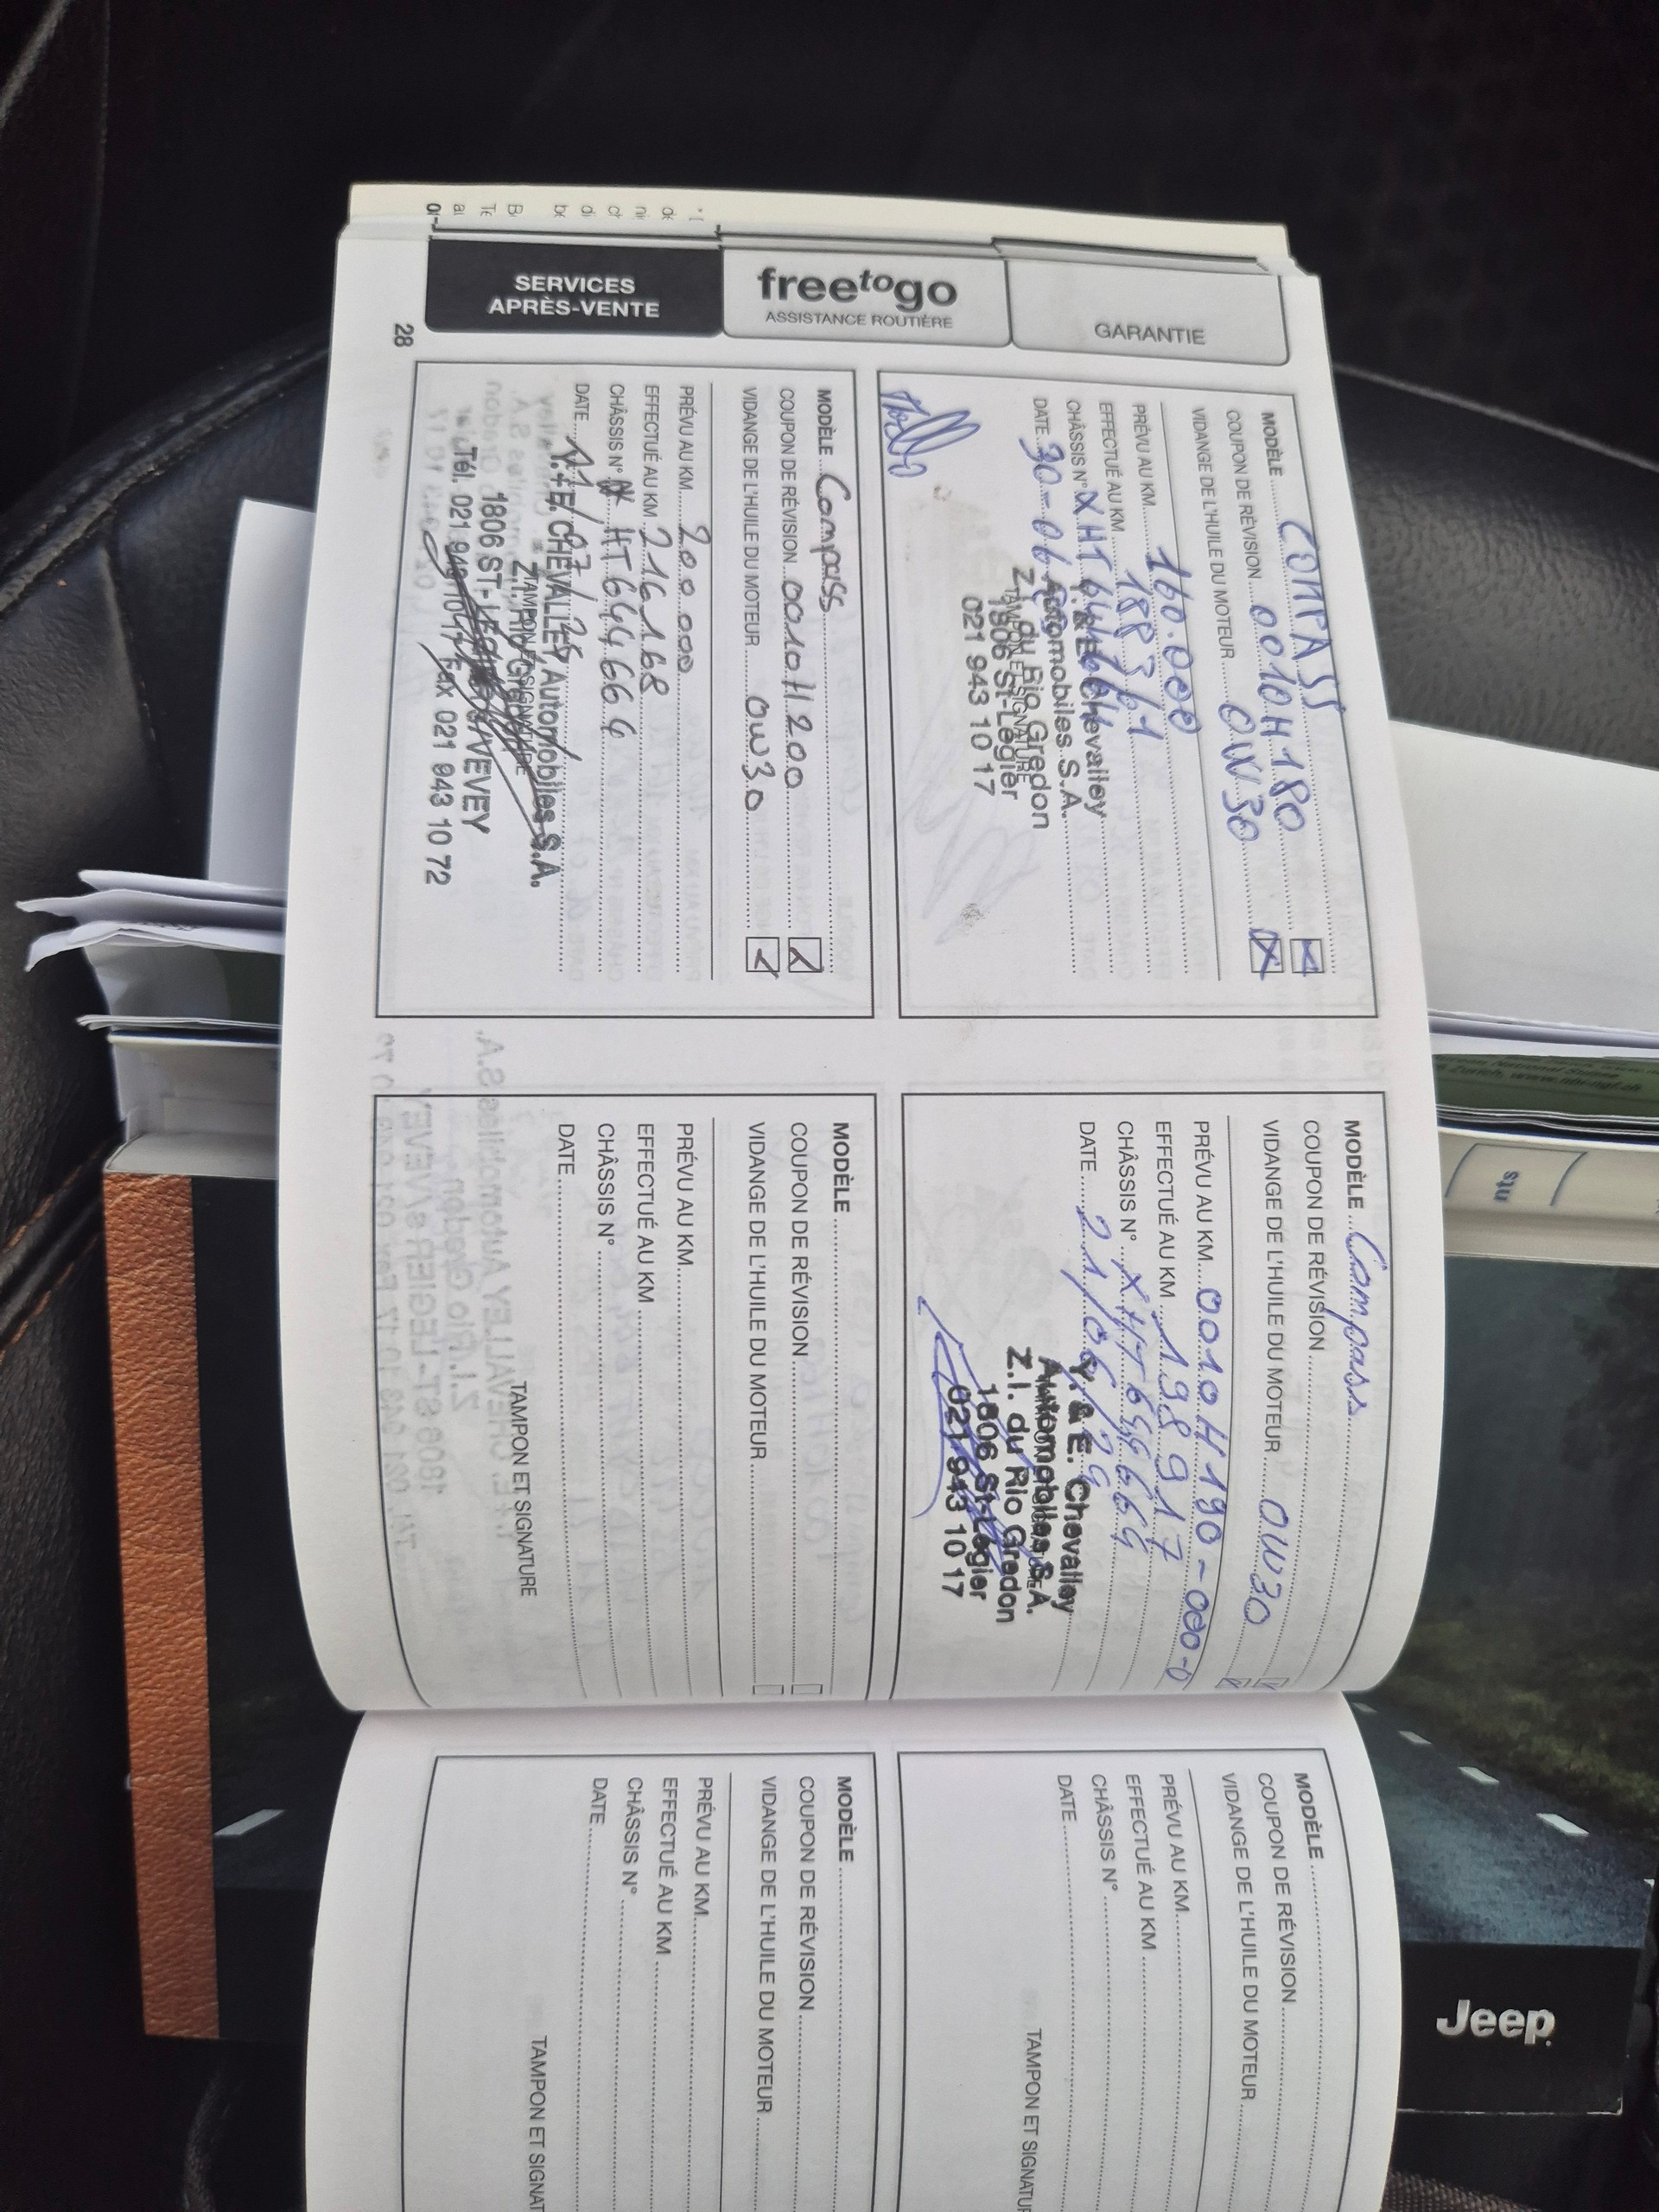 GARANTIE
freetogo
ASSISTANCE ROUTIÈRE
SERVICES
APRÈS-VENTE
MODÈLE COMPASS
COUPON DE RÉVISION 0010H180
VIDANGE DE L'HUILE DU MOTEUR 0W30
PRÉVU AU KM 160.000
EFFECTUÉ AU KM 188361
CHÂSSIS N° XHT644664
DATE 30-06
Y. & E. Chevalley
Automobiles S.A.
Z.I. du Rio Gredon
TAMPON ET SIGNATURE
1806 St-Légier
021 943 10 17
MODÈLE Compass
COUPON DE RÉVISION
VIDANGE DE L'HUILE DU MOTEUR 0W30
PRÉVU AU KM 0010H190-000-0
EFFECTUÉ AU KM 198917
CHÂSSIS N° XHT644664
DATE 21/06/
Y. & E. Chevalley
Automobiles S.A.
Z.I. du Rio Gredon
1806 St-Légier
021 943 10 17
MODÈLE Compass
COUPON DE RÉVISION 0010H200
VIDANGE DE L'HUILE DU MOTEUR 0W30
PRÉVU AU KM 200000
EFFECTUÉ AU KM 216168
CHÂSSIS N° HT644664
DATE
Y. + E. CHEVALLEY Automobiles S.A.
TAMPON ET SIGNATURE
Z.I. Rio Gredon
1806 ST-LEGIER s/VEVEY
Tél. 021 943 10 17 Fax 021 943 10 72
MODÈLE
COUPON DE RÉVISION
VIDANGE DE L'HUILE DU MOTEUR
PRÉVU AU KM
EFFECTUÉ AU KM
CHÂSSIS N°
DATE
TAMPON ET SIGNATURE
28
MODÈLE
COUPON DE RÉVISION
VIDANGE DE L'HUILE DU MOTEUR
PRÉVU AU KM
EFFECTUÉ AU KM
CHÂSSIS N°
DATE
TAMPON ET SIGNATUR
MODÈLE
COUPON DE RÉVISION
VIDANGE DE L'HUILE DU MOTEUR
PRÉVU AU KM
EFFECTUÉ AU KM
CHÂSSIS N°
DATE
TAMPON ET SIGNAT
Jeep